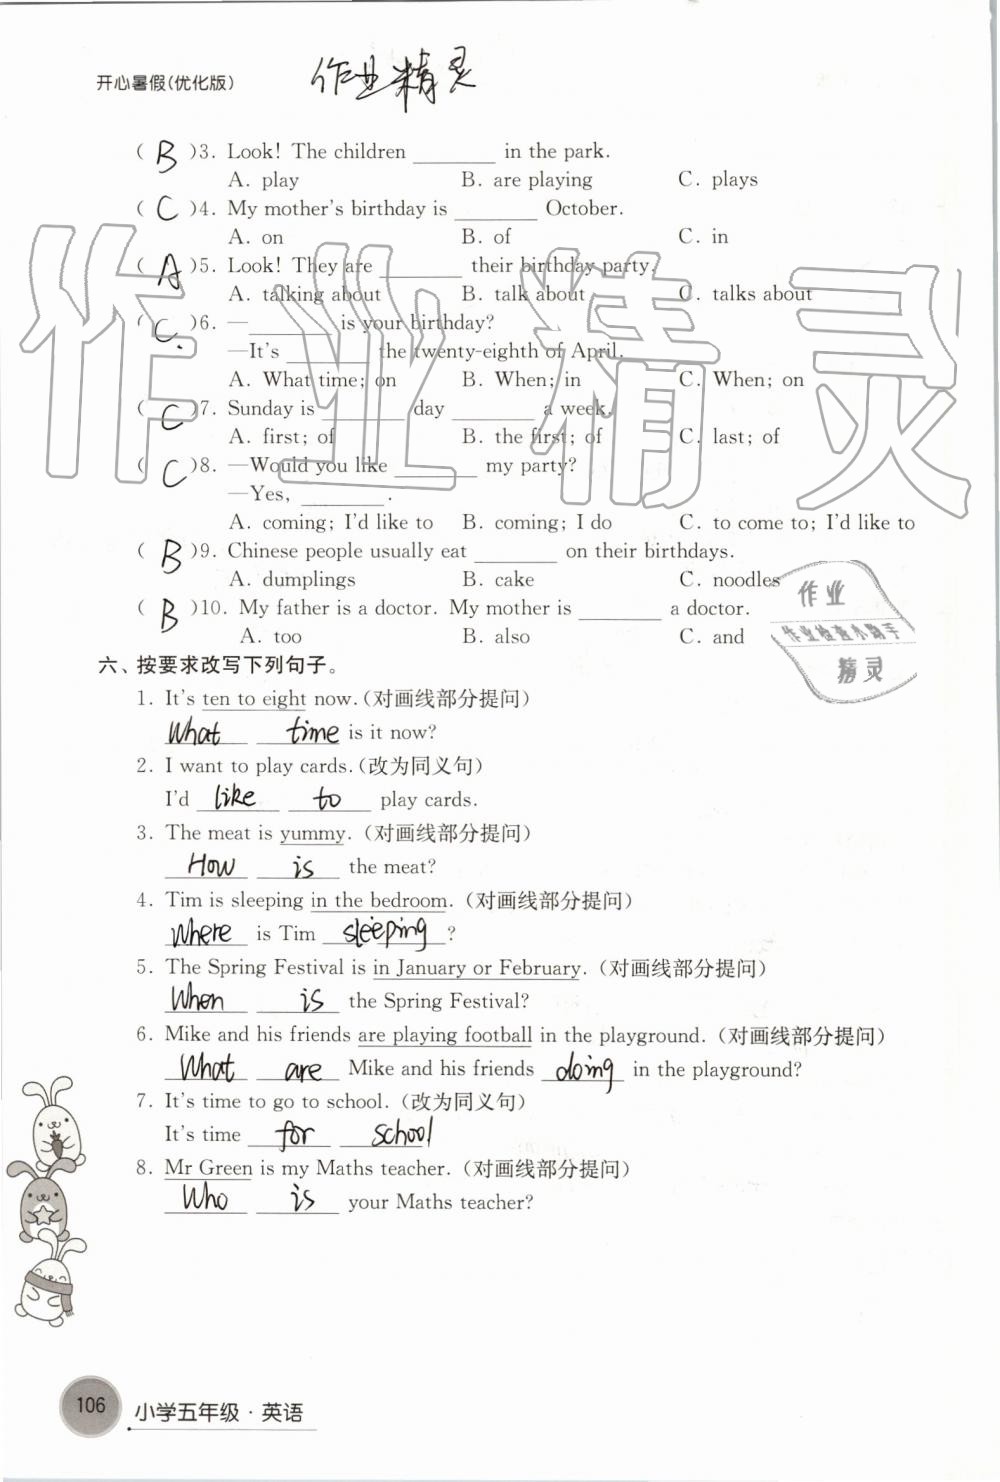 开心暑假(优化版)
作业精灵
( B )3. Look! The children ________ in the park.
A. play B. are playing C. plays
( C )4. My mother's birthday is ________ October.
A. on B. of C. in
( A )5. Look! They are ________ their birthday party.
A. talking about B. talk about C. talks about
( C )6. —________ is your birthday?
—It's ________ the twenty-eighth of April.
A. What time; on B. When; in C. When; on
( C )7. Sunday is ________ day ________ a week.
A. first; of B. the first; of C. last; of
( C )8. —Would you like ________ my party?
—Yes, ________.
A. coming; I'd like to B. coming; I do C. to come to; I'd like to
( B )9. Chinese people usually eat ________ on their birthdays.
A. dumplings B. cake C. noodles
( B )10. My father is a doctor. My mother is ________ a doctor.
A. too B. also C. and
作业精灵
作业
作业检查小助手
精灵
六、按要求改写下列句子。
1. It's ten to eight now.(对画线部分提问)
What time is it now?
2. I want to play cards.(改为同义句)
I'd like to play cards.
3. The meat is yummy.(对画线部分提问)
How is the meat?
4. Tim is sleeping in the bedroom.(对画线部分提问)
Where is Tim sleeping?
5. The Spring Festival is in January or February.(对画线部分提问)
When is the Spring Festival?
6. Mike and his friends are playing football in the playground.(对画线部分提问)
What are Mike and his friends doing in the playground?
7. It's time to go to school.(改为同义句)
It's time for school
8. Mr Green is my Maths teacher.(对画线部分提问)
Who is your Maths teacher?
106
小学五年级·英语